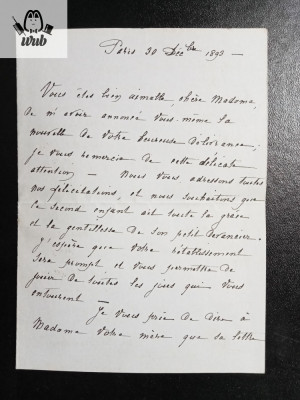 wrb
Paris 30 Décbre 1893 —
Vous êtes bien aimable, chère Madame,
de m'avoir annoncé vous-même la
nouvelle de votre heureuse délivrance ;
je vous remercie de cette délicate
attention — Nous vous adressons toutes
nos félicitations, et nous souhaitons que
le second enfant ait toute la grâce
et la gentillesse de son petit devancier.
J'espère que votre rétablissement
sera prompt et vous permettra de
jouir de toutes les joies qui vous
entourent —
Je vous prie de dire à
Madame votre mère que sa lettre